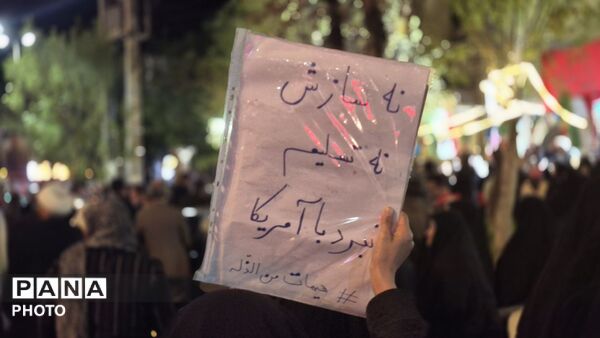 نه سازش
نه تسلیم
نبرد با آمریکا
#هیهات من الذّله
PANA
PHOTO